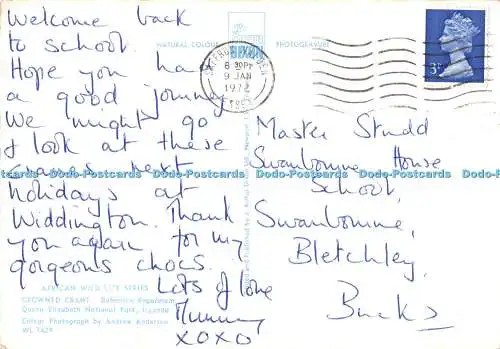 Welcome back
to school.
Hope you had
a good journey
We might go
& look at these
cranes next
holidays at
Widdington. Thank
you again for my
gorgeous chocs.
Lots of love
Mummy
XOXO
NATURAL COLOUR PHOTOGRAVURE
SAFFRON WALDEN
6 30PM
9 JAN
1972
ESSEX
3P
Master Studd
Swanbourne House
School,
Swanbourne,
Bletchley,
Bucks
AFRICAN WILD LIFE SERIES
CROWNED CRANE Balearica Regulorum
Queen Elizabeth National Park, Uganda
Colour Photograph by Andrew Anderson
WL 7429
Dodo-Postcards Dodo-Postcards Dodo-Postcards Dodo-Postcards Dodo-Postcards Dodo-Postcards